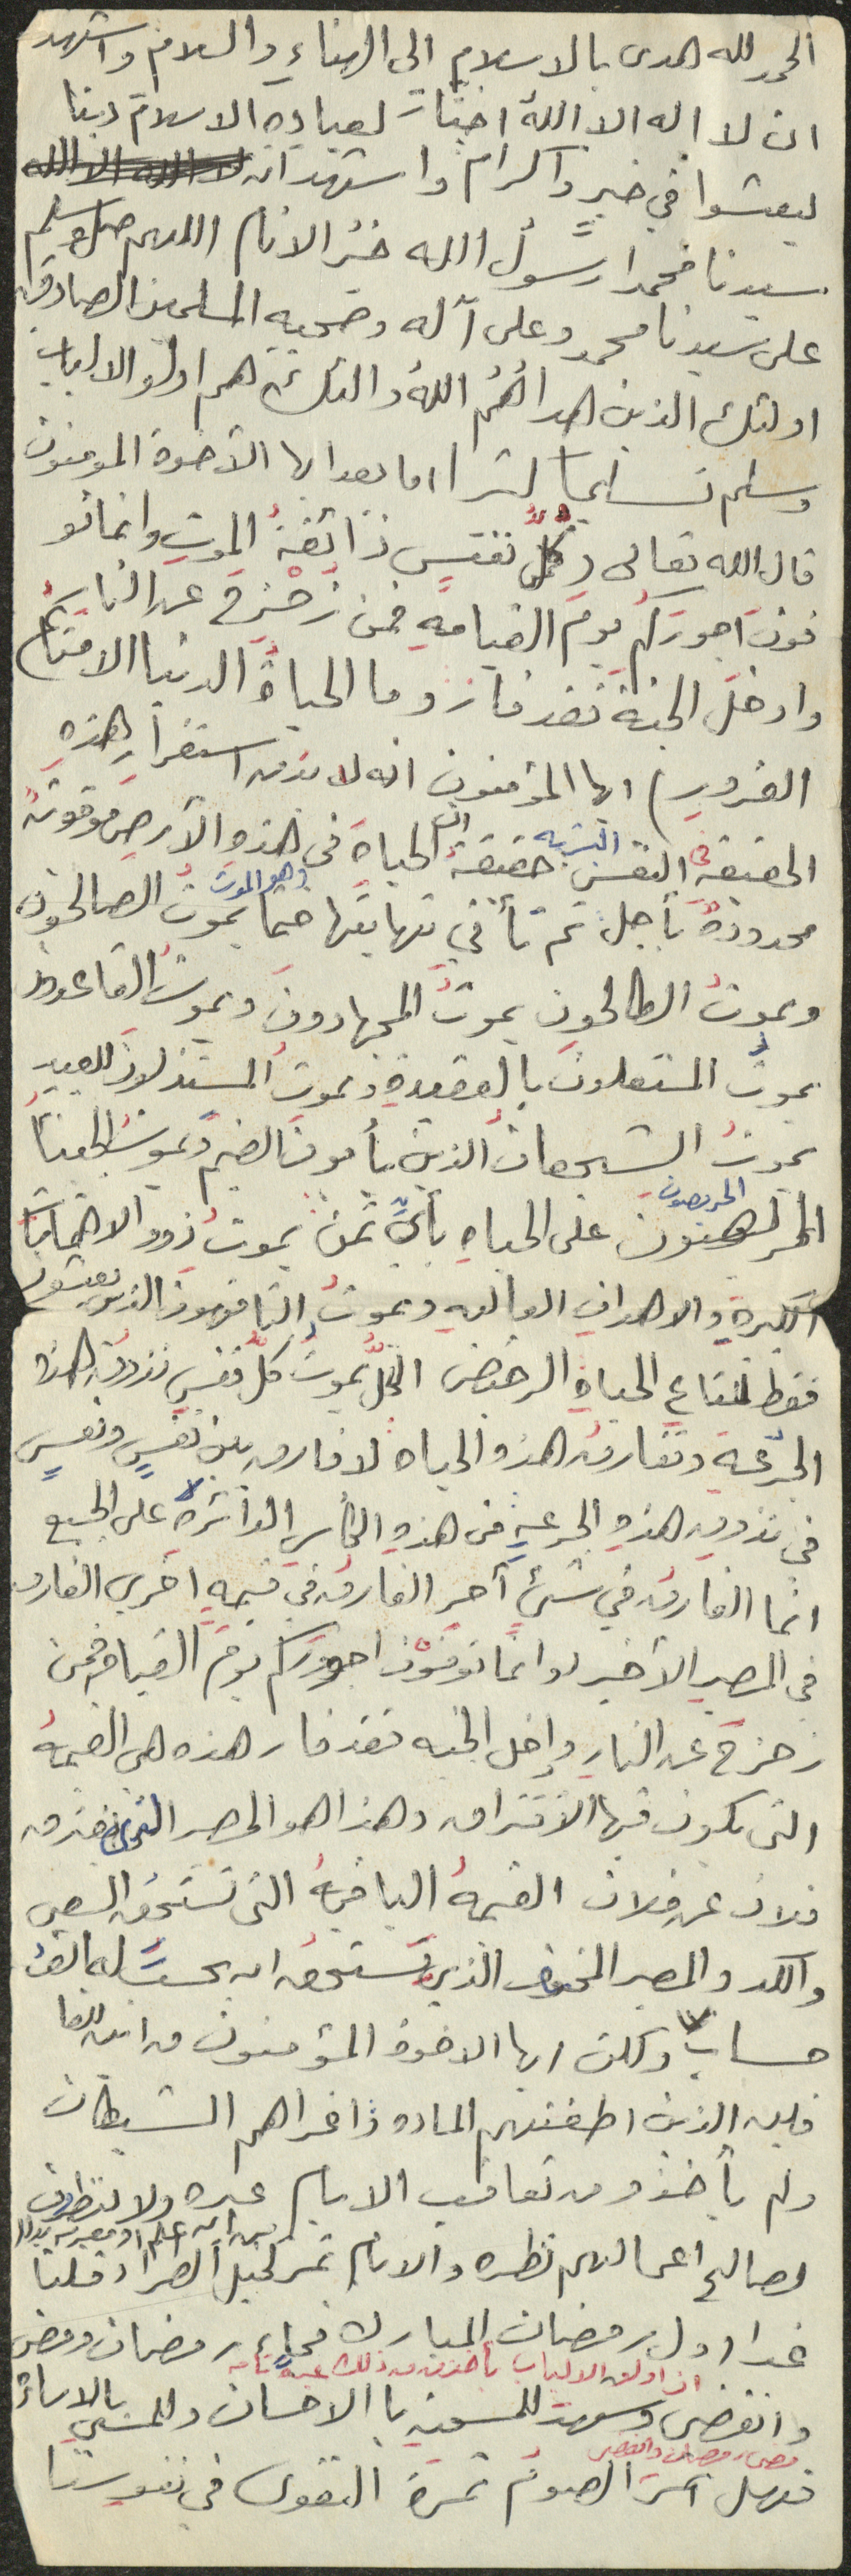 الحمد لله هدى بالاسلام الى الهناءِ والسلام واشهد
ان لا اله الا اللهُ اختار لعباده الاسلام دينا
ليعيشوا في خيرٍ واكرام واشهد ان لا اله الا الله
سيدنا محمدا رسولُ الله خيرُ الانام اللهم صل وسلم
على سيدنا محمد وعلى آله وصحبه المسلمين الصادقين
اولئك الذين هداهُمُ اللهُ واولئك هم اولو الالباب
وسلم تسليما كثيرا اما بعد ايها الأخوة المومنون
قال الله تعالى (كلُّ نفسٍ ذائقةُ الموتِ وانما تو
فون اجورَكم يومَ القيامةِ فمن زُحْزِحَ عن النارِ
وادخلَ الجنةَ فقد فاز وما الحياةُ الدنيا الا متاعُ
الغرورِ) ايها المؤمنون انه لا بد من استقرارِ هذهِ
الحقيقةِ في النفس البشريه حقيقة ان الحياةَ في هذه الأرضِ موقوتةٌ
محدودةٌ بأجل ثم تأتي نهايتها حتما وهو الموت يموتُ الصالحون
ويموتُ الطالحون يموتُ المجاهدون ويموتُ القاعدون
يموتُ المستعلونَ بالعقيدةِ ويموتُ المستذلونَ للعبيد
يموتُ الشجعانُ الذين يأبونَ الضيم ويموتُ الجبناءُ
الحريصون على الحياةِ بأيِّ ثمن يموتُ ذوو الاهتماماتِ
الكبيرةِ والاهدافِ العاليه ويموتُ التافهونَ الذين يعيشون
فقط لمتاعِ الحياةِ الرخيص الكلُّ يموتُ كلُّ نفسٍ تذوقُ هذه
الجرعةَ وتفارقُ هذه الحياة لا فارق بين نفسٍ ونفسٍ
في تذوق هذهِ الجرعةِ من هذهِ الكأسِ الدائرةِ على الجميع
انما الفارقُ في شيءٍ آخر الفارقُ في قيمةٍ اخرى الفارق
في المصيرِ الأخير وانما توفون اجورَكم يومَ القيامة فمن
زحزحَ عن النارِ وادخل الجنه فقد فاز هذه هي القيمةُ
التي يكون فيها الافتراق وهذا هو المصير الذي يفترق
فلان عن فلان القيمةُ الباقيةُ التي تستحق السعي
والكد والمصير المخوف الذي يستحق ان يحسبَ له الفُ
حساب ولكن ايها الاخوة المؤمنون من
الذين اطغتهم المادة واغراهم الشيطان
ولم يأخذوا من تعاقب الايام عبره ولا ينظرون
لصالح اعمالهم نظره والايام تمر
غدا اول رمضان المبارك فجاء رمضان ومضى
ان اولي الالباب يأخذون من ذلك عبرة
وانقضى وشهد للمحسنين بالاحسان وللمسيئ بالاساءة
مضى رمضان وانقضى
فهل اثمرَ الصومُ ثمرةَ التقوى في نفوسنا